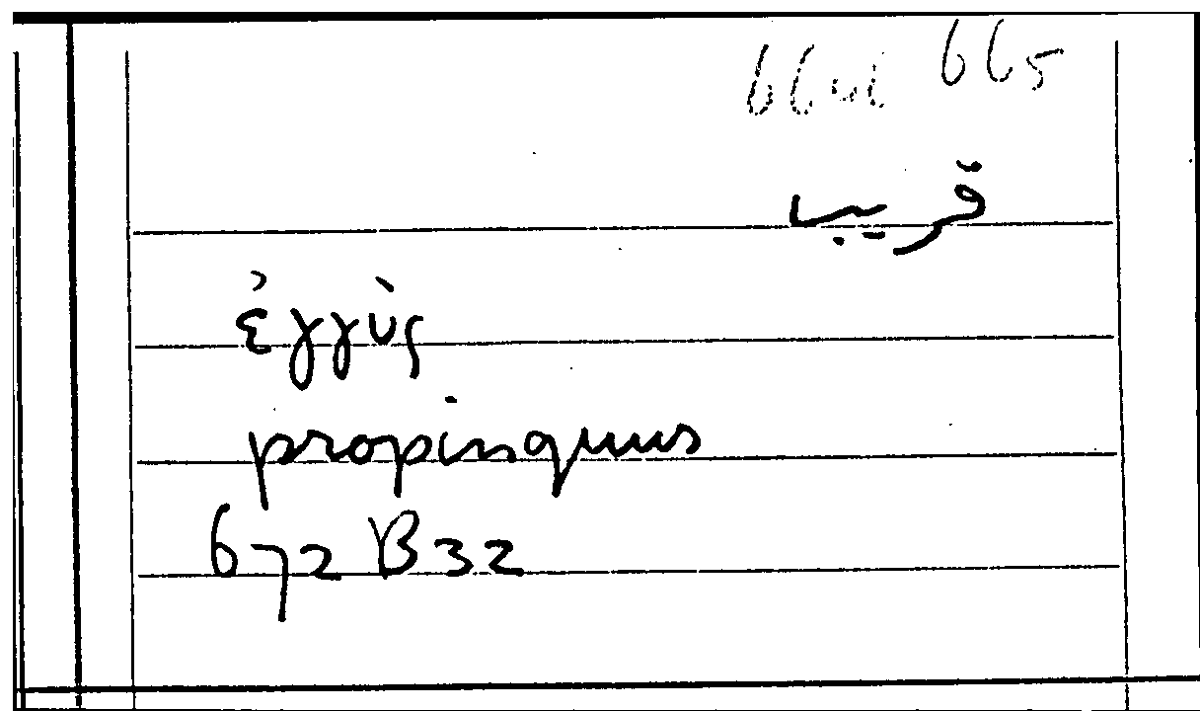 665
قريب
ἐγγὺς
propinquus
672 B32